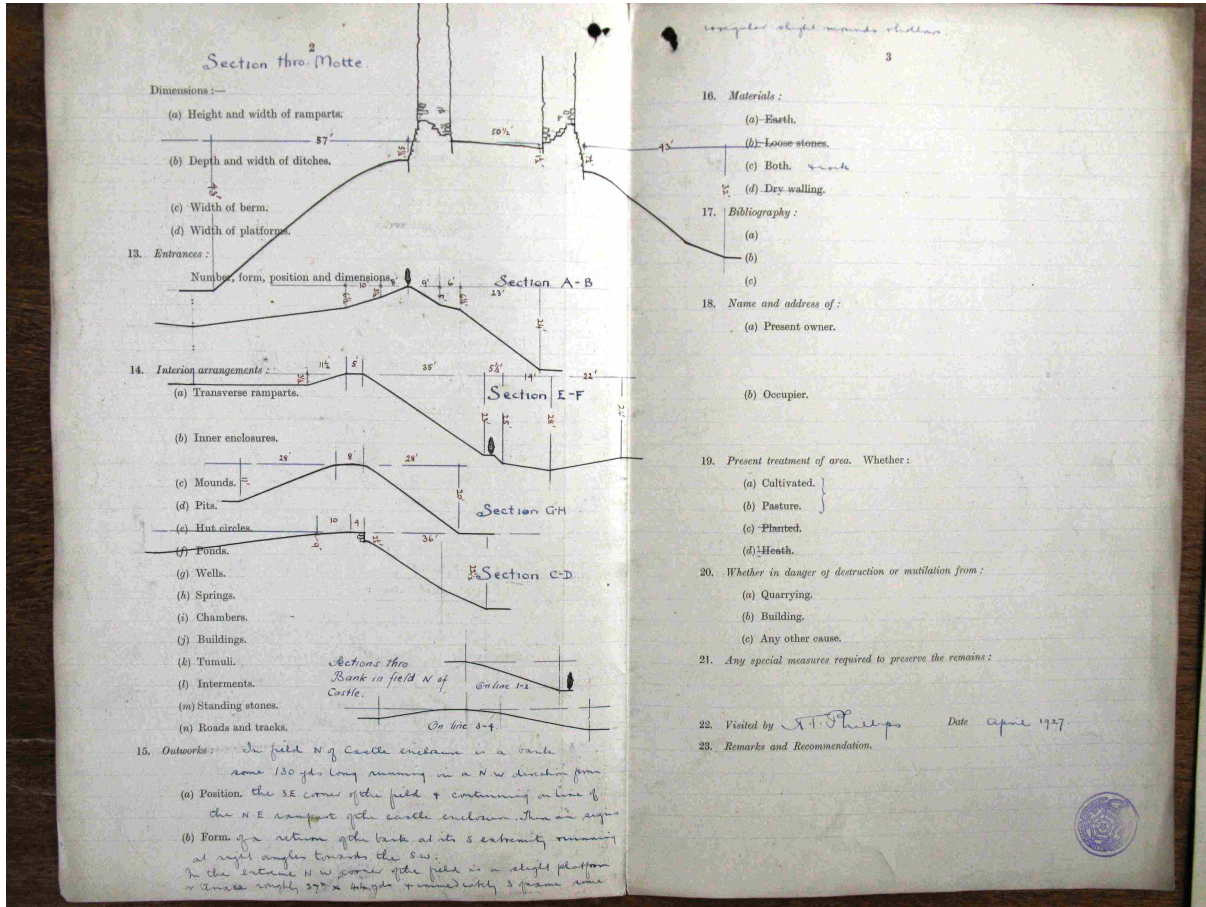 2
Section thro. Motte.
Dimensions :—
(a) Height and width of ramparts.
57'
50½'
(b) Depth and width of ditches.
43'
(c) Width of berm.
(d) Width of platforms.
13. Entrances :
Number, form, position and dimensions.
10
8'
9'
6'
23'
Section A-B
6½'
5'
24'
14. Interior arrangements :
11½
5'
35'
5½'
14'
22'
(a) Transverse ramparts.
Section E-F
23'
25'
28'
(b) Inner enclosures.
28'
8'
28'
(c) Mounds.
11'
(d) Pits.
20'
Section G-H
(e) Hut circles.
10
4
36'
(f) Ponds.
9'
(g) Wells.
Section C-D
(h) Springs.
(i) Chambers.
(j) Buildings.
(k) Tumuli.
Sections thro
Bank in field N of
Castle.
On line 1-2
(l) Interments.
(m) Standing stones.
On line 3-4.
(n) Roads and tracks.
15. Outworks : In field N of Castle enclosure is a bank
some 130 yds long running in a N.W direction from
(a) Position. the S.E corner of the field & continuing on line of
the N.E rampart of the castle enclosure. There are signs
(b) Form. of a return of the bank at its S extremity running
at right angles towards the S.W.
In the extreme N.W corner of the field is a slight platform
or terrace roughly 37 x 44 yds & immediately S of same some
irregular slight mounds & hollows
3
16. Materials :
(a) Earth.
(b) Loose stones.
43'
(c) Both. & rock
32'
(d) Dry walling.
17. Bibliography :
(a)
(b)
(c)
18. Name and address of :
(a) Present owner.
(b) Occupier.
19. Present treatment of area. Whether :
(a) Cultivated.
(b) Pasture.
(c) Planted.
(d) Heath.
20. Whether in danger of destruction or mutilation from :
(a) Quarrying.
(b) Building.
(c) Any other cause.
21. Any special measures required to preserve the remains :
22. Visited by Phillips Date April 1927.
23. Remarks and Recommendation.